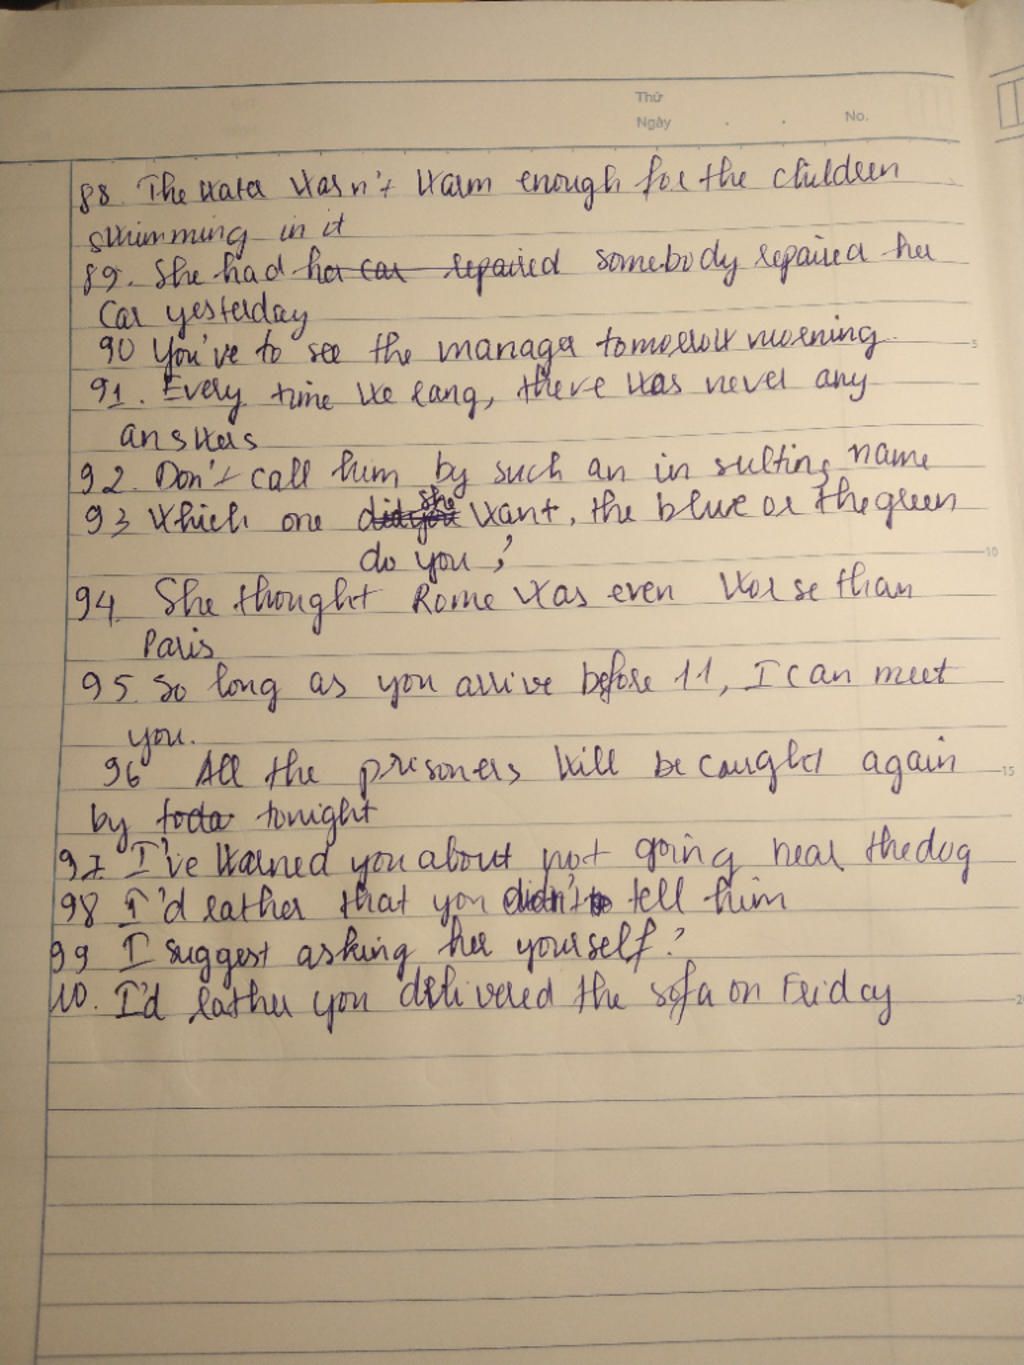 Thứ
Ngày . . No.
88. The water wasn't warm enough for the children
swimming in it
89. She had her car repaired somebody repaired her
car yesterday
90 You've to see the manager tomorrow morning
5
91. Every time we rang, there was never any
answers
92. Don't call him by such an in sulting name
93 Which one did you she want, the blue or the green
do you ?
10
94 She thought Rome was even worse than
Paris
95. So long as you arrive before 11, I can meet
you.
96 All the prisoners will be caught again
15
by toda tonight
97. I've warned you about not going near the dog
98 I'd rather that you didn't tell him
99 I suggest asking her yourself?
100. I'd rather you delivered the sofa on Friday